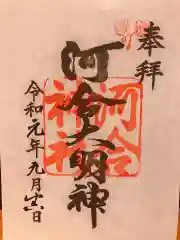 奉拝
河合大明神
河合神社
令和元年九月十六日